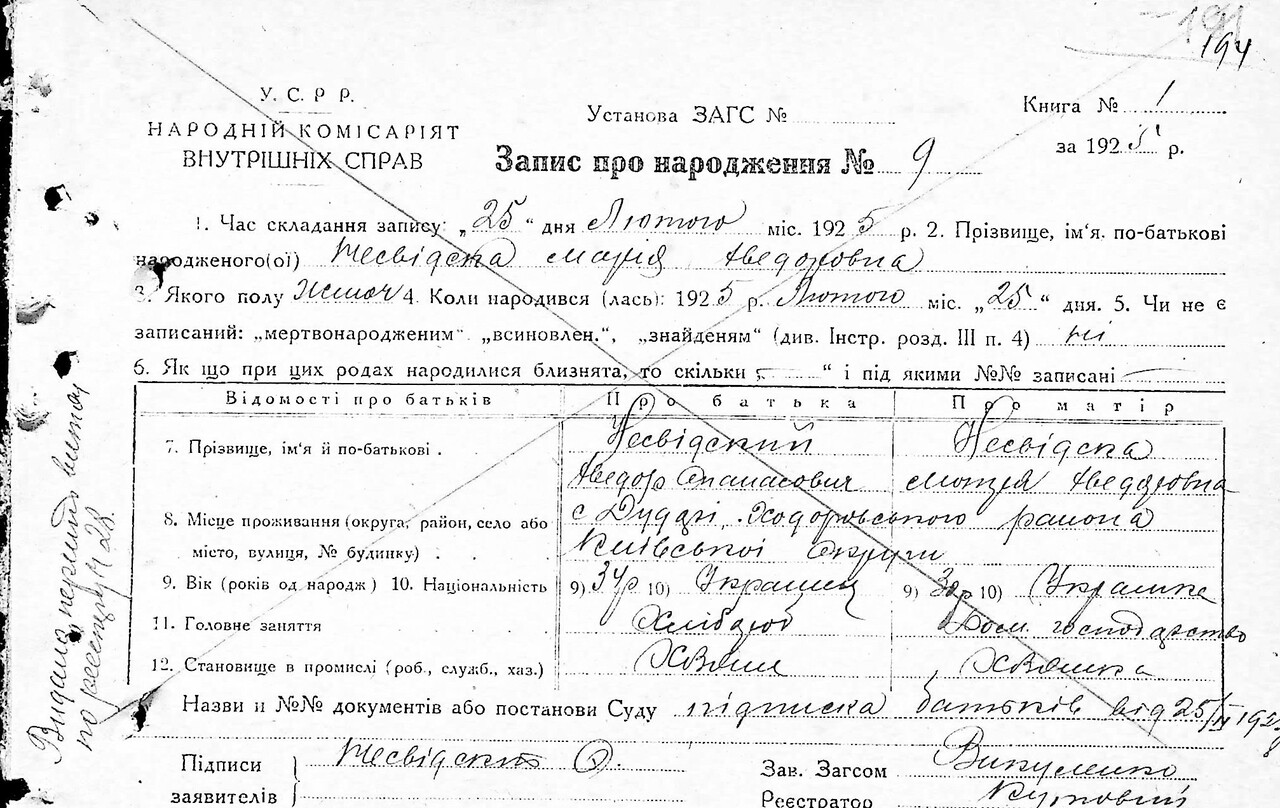 194
У. С. Р Р.
НАРОДНІЙ КОМІСАРІЯТ
ВНУТРІШНІХ СПРАВ
Установа ЗАГС №
Книга № 1
за 1925 р.
Запис про народження № 9
1. Час складання запису: „25“ дня Лютого міс. 1925 р. 2. Прізвище, ім'я, по-батькові
народженого(ої) Несвідска Марія Фведоровна
3. Якого полу Жіноч 4. Коли народився (лась): 1925 р. Лютого міс. „25“ дня. 5. Чи не є
записаний: „мертвонародженим“ „всиновлен.“, „знайденям“ (див. Інстр. розд. III п. 4) ні
6. Як що при цих родах народилися близнята, то скільки „ “ і під якими №№ записані
Відомості про батьків Про батька Про матір
7. Прізвище, ім'я й по-батькові . Несвідский Несвідска
Фведор Опанасович Фведоровна
8. Місце проживання (округа, район, село або с Дударі, Ходоровського района
місто, вулиця, № будинку) . Київської Округи
9. Вік (років од народж) 10. Національність 9) 34р 10) Українец 9) 30р 10) Українка
11. Головне заняття Хлібороб Дом. господарство
12. Становище в промислі (роб., служб., хаз.) Хазяїн Хазяйка
Назви и №№ документів або постанови Суду підписка батьків від 25/II 1925
Підписи Несвідский Ф.
заявителів
Зав. Загсом
Реєстратор